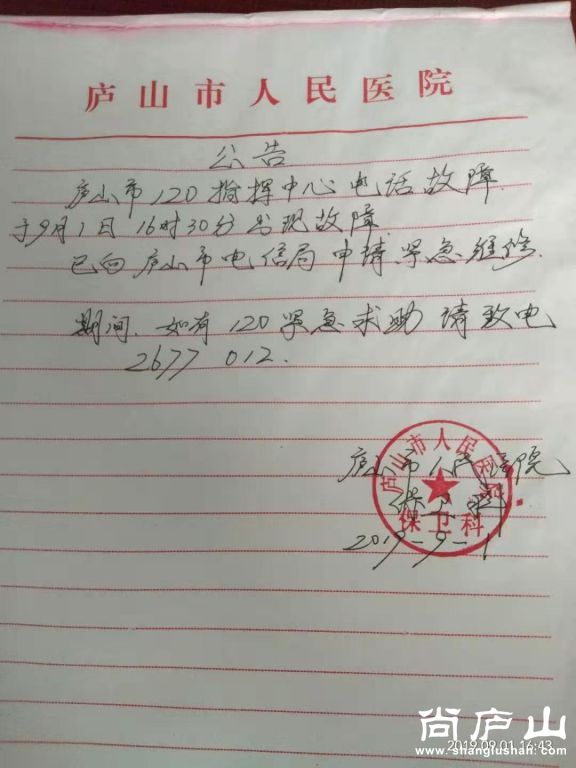 庐山市人民医院
公告
庐山市120指挥中心电话故障.
于9月1日16时30分出现故障.
已向庐山市电信局申请紧急维修.
期间、如有120紧急求助请致电
2677 012.
庐山市人民医院
保卫科
2019-9-1
庐山市人民医院
保卫科
尚庐山
2019.09.01 16:43
www.shanglushan.com